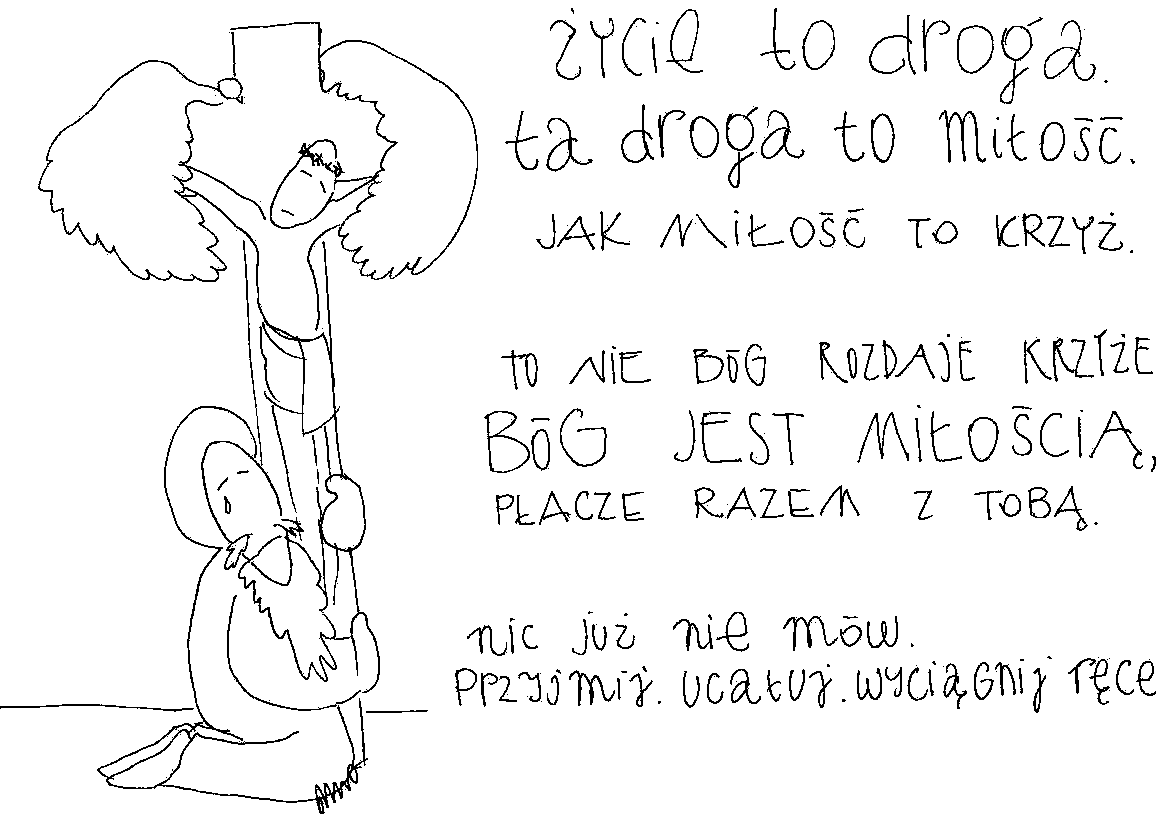 życie to droga.
ta droga to miłość.
JAK MIŁOŚĆ TO KRZYŻ.
TO NIE BÓG ROZDAJE KRZYŻE
BÓG JEST MIŁOŚCIĄ,
PŁACZE RAZEM Z TOBĄ.
nic już nie mów.
przyjmij. ucałuj. wyciągnij ręce